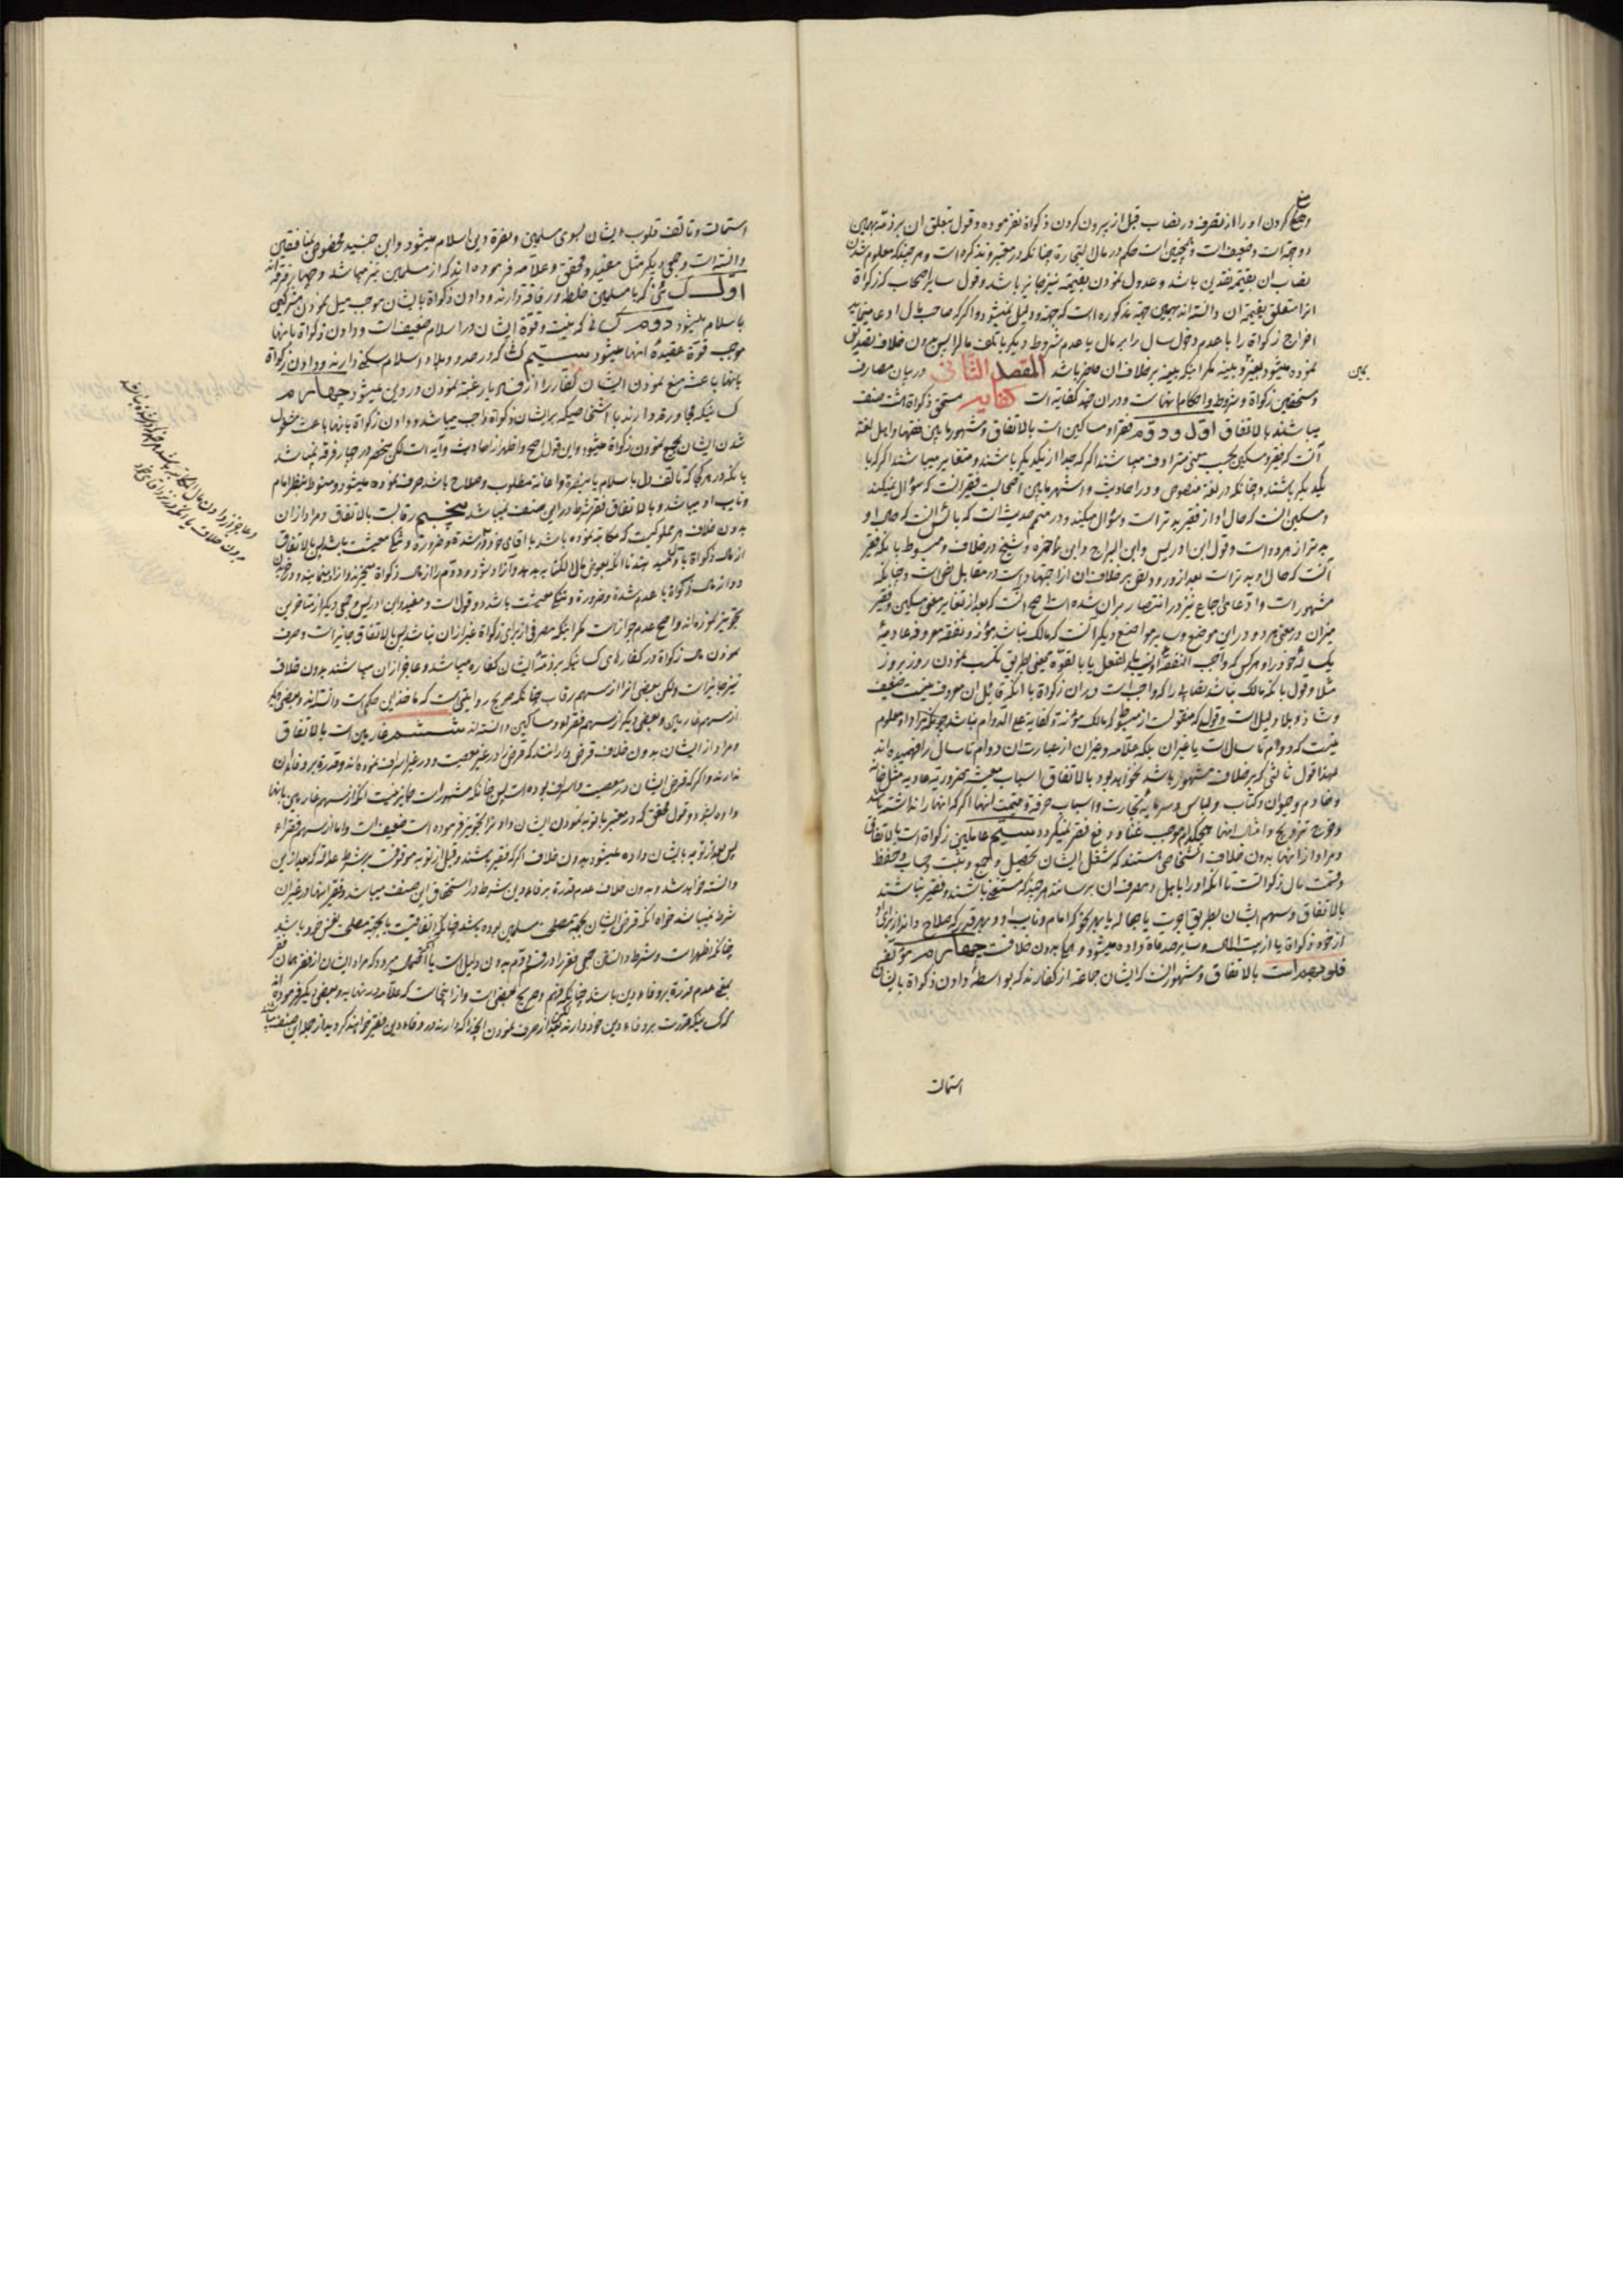 منع
کردن او را از تصرف در نصاب قبل از بیرون کردن زکواة نفرموده و قول بتعلق ان بر ذمه بهمین
دو جهة است و ضعیف است و همچنین است حکم در مال التجارة چنانکه در معتبر و تذکره است و هر چند که معلوم شدن
نصاب ان بقیمة نقدین باشد و عدول نمودن بقیمة نیز جایز باشد و قول سایر اصحاب که زکواة
انرا متعلق بقیمة ان دانسته اند بهمین جهة مذکوره است که جهة و دلیل نمیشود و اگر که صاحب مال ادعا مینماید
اخراج زکواة را یا عدم دخول سال را بر مال یا عدم شروط دیگر یا تلف مال را پس بدون خلاف تصدیق
نموده میشود بغیر بینه مگر اینکه بینه بر خلاف ان حاضر باشد المقصد الثانی در بیان مصارف
یمین
و مستحقین زکواة و شروط و احکام انهاست و در ان چند کفایه است کفایه مستحق زکواة هشت صنف
میباشند بالاتفاق اول و دوم فقرا و مساکین است بالاتفاق و مشهور مابین فقها و اهل لغة
آنست که فقیر و مسکین بحسب معنی مترادف میباشند اگر که جدا از یکدیگر باشند و متغایر میباشند اگر که با
یکدیگر باشند و چنانکه در لغة منصوص و در احادیث و اشهر مابین اصحابست فقیر انست که سؤال نمیکند
و مسکین انست که حال او از فقیر بدتر است و سؤال میکند و در متمم حدیث است که بائس انست که حال او
بدتر از هر دو است و قول ابن ادریس و ابن البراج و ابن حمزه و شیخ در خلاف و مبسوط بانکه فقیر
آنست که حال او بدتر است بعد از ورود نص بر خلاف ان از اجتهاد است در مقابل نص است و چنانکه
مشهور است و ادعای اجماع نیز در انتصار بران شده است اصح انست که بعد از تغایر معنی مسکین و فقیر
میزان در معنی هر دو در این موضع و سایر مواضع دیگر آنست که مالک نباشد مؤنه و نفقه معروفه عادیهٔ
یکساله خود را و هر کس که واجب النفقه اویند بالفعل یا بالقوه یعنی بطریق کسب نمودن روز بروز
مثلا و قول بانکه مالک نباشد نصابی را که واجب است در ان زکواة با انکه قایل ان معروف نیست ضعیف
و شاذ و بلا دلیل است و قولی که منقول است از مبسوط که مالک مؤنه و کفایه علی الدوام نباشد
نیست که دوام تا سال است یا غیر ان بلکه علامه و غیر ان از عبارت ان دوام تا سال را فهمیده اند
لهذا قول ثالثی که بر خلاف مشهور باشد نخواهد بود بالاتفاق اسباب معیشه ضروریه عادیه مثل خانه
و خادم و حیوان و کتاب و لباس و سرمایه تجارت و اسباب حرفة و قیمت انها اگر که انها را نداشته باشد
و خرج تزویج و امثال انها هیچکدام موجب غنا و رفع فقر نمیگردد سیم عاملین زکواة است بالاتفاق
و مراد از انها بدون خلاف اشخاصی هستند که شغل ایشان تحصیل و جمع و ثبت حساب و حفظ
و قسمت مال زکوااتست تا انکه او را باهل و مصرف ان برسانند هر چند که مستحق نباشند و فقیر نباشند
بالاتفاق و سهم ایشان بطریق اجرت یا جعاله یا بهر نحو که امام و نایب او و بهر قدر که صلاح داند از برای او
از خود زکواة یا از بیت المال و سایر صدقات داده میشود و اینها بدون خلافست چهارم مؤلفة
قلوبهم است بالاتفاق و مشهور انست که ایشان جماعتی از کفارند که بواسطهٔ دادن زکواة بایشان
استمالت
استمالت و تالف قلوب ایشان بسوی مسلمین و نصرة دین اسلام میشود و ابن جنید مخصوص بمنافقین
دانسته است و جمعی دیگر مثل مفید و محقق و علامه فرموده اند که از مسلمین نیز میباشد و چهار فرقه اند
اول کسانی که با مسلمین خلطه و رفاقة دارند و دادن زکواة بایشان موجب میل نمودن مشرکین
باسلام میشود دوم کسانی که نیت و قوة ایشان در اسلام ضعیف است و دادن زکواة بانها
موجب قوة عقیدهٔ انها میشود سیم کسانی که در حدود بلاد اسلام سکنی دارند و دادن زکواة
بانها باعث منع نمودن ایشان کفار را از فساد یا رغبة نمودن در دین میشود چهارم
کسانیکه مجاورة دارند با اشخاصیکه بر ایشان زکواة واجب میباشد و دادن زکواة بانها باعث مشغول
شدن ایشان بجمع نمودن زکواة میشود و این قول اصح و اظهر از احادیث و آیه است لکن منحصر در چهار فرقه نمیباشد
بلکه در هر کجا که تالف دل باسلام یا بنصرة و اعانة مطلوب و صلاح باشد صرف نموده میشود و منوط بنظر امام
و نایب او میباشد و بالاتفاق فقر شرط در این صنف نمیباشد پنجم رقابست بالاتفاق و مراد از ان
بدون خلاف هر مملوکیست که مکاتبه نموده باشد با اقای خود و در شدة و ضرورة و تنگی معیشت باشد پس بالاتفاق
از مال زکواة باو میدهند تا انکه بعوض مال الکتابه بدهد و آزاد شود و دوم را از مال زکواة میخرند و آزاد مینمایند و در خریدن
از مال زکواة با عدم شدة و ضرورة و تنگی معیشت باشد دو قول است و مفید و ابن ادریس و جمعی دیگر از متاخرین
تجویز نموده اند و اصح عدم جواز است مگر اینکه مصرفی از برای زکواة غیر از ان نباشد پس بالاتفاق جایز است و صرف
نمودن مال زکواة در کفاره کسانیکه بر ذمهٔ ایشان کفاره میباشد و عاجز از ان میباشند بدون خلاف
نیز جایز است ولکن بعضی انرا از سهم رقاب چنانکه صریح روایتی است که ماخذ این حکم است دانسته اند و بعضی دیگر
از سهم غارمین و بعضی دیگر از سهم فقرا و مساکین دانسته اند ششم غارمین است بالاتفاق
و مراد از ایشان بدون خلاف قرض دارانند که قرض را در غیر معصیت و در غیر اسراف نموده اند و قدرة بر وفا ان
ندارند و اگر که قرض ایشان در معصیت و اسراف بوده است پس چنانکه مشهور است جایز نیست انکه از سهم غارمین بانها
داده بشود و قول محقق که در معتبر با توبه نمودن ایشان دادنرا تجویز فرموده است ضعیف است و اما از سهم فقراء
پس بعد از توبه بایشان داده میشود بدون خلاف اگر که فقیر باشند و قبل از توبه موقوفست بر شرط عدالة که بعد از این
دانسته خواهد شد و بدون خلاف عدم قدرة بر وفاء دین شرط در استحقاق این صنف میباشد و فقر انها در غیر ان
شرط نمیباشد خواه انکه قرض ایشان بجهة مصلحت مسلمین بوده باشد چنانکه اتفاقیست یا بجهة مصلحت نفس خود باشد
چنانکه اظهر است و شرط دانستن جمعی فقر را در قسم دوم بدون دلیل است یا احتمال میرود که مراد ایشان از فقر همان
بمعنی عدم قدرة بر وفاء دین باشد چنانکه فهم و صریح بعضی است و از اینجاست که علامه در نهایه و بعضی دیگر فرموده اند
که کسانیکه قدرت بر وفاء دین خود دارند لکن بعد از صرف نمودن انچه را که دارند در وفاء دین فقیر خواهند گردید از جمله این صنف میباشند